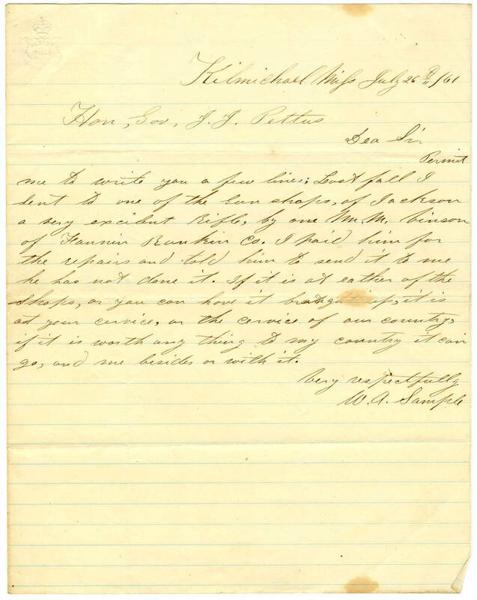 Kilmichael Miss July 26th /61
Hon, Gov, J. J. Pettus
Dea Sir,
Permit
me to write you a few lines; Last fall I
sent to one of the Gun shops, of Jackson
a very excelent Rifle, by one Mr. M. Vinson
of Fannin Rankin Co. I paid him for
the repairs and told him to send it to me
he has not done it. If it is at eather of the
Shops, or you can have it up, it is
at your cervice, or the cervice of our country,
if it is worth any thing to my country it can
go, and me besides or with it.
Very respectfully
W. A. Sample